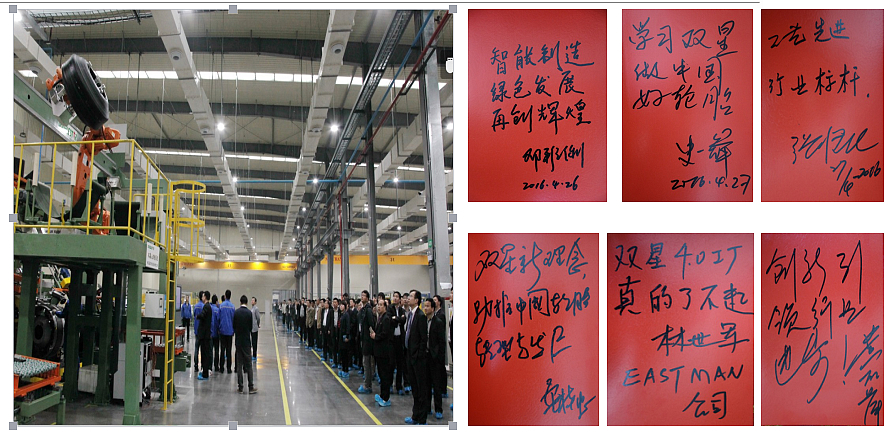 智能制造
绿色发展
再创辉煌
2016.4.26
学习双星
做中国
好轮胎
2016.4.27
工艺先进
行业标杆.
2016
双星新理念,
助推中国轮胎
双星4.0工厂
真的了不起
林世军
EASTMAN
公司
创新引
领行业
进步!